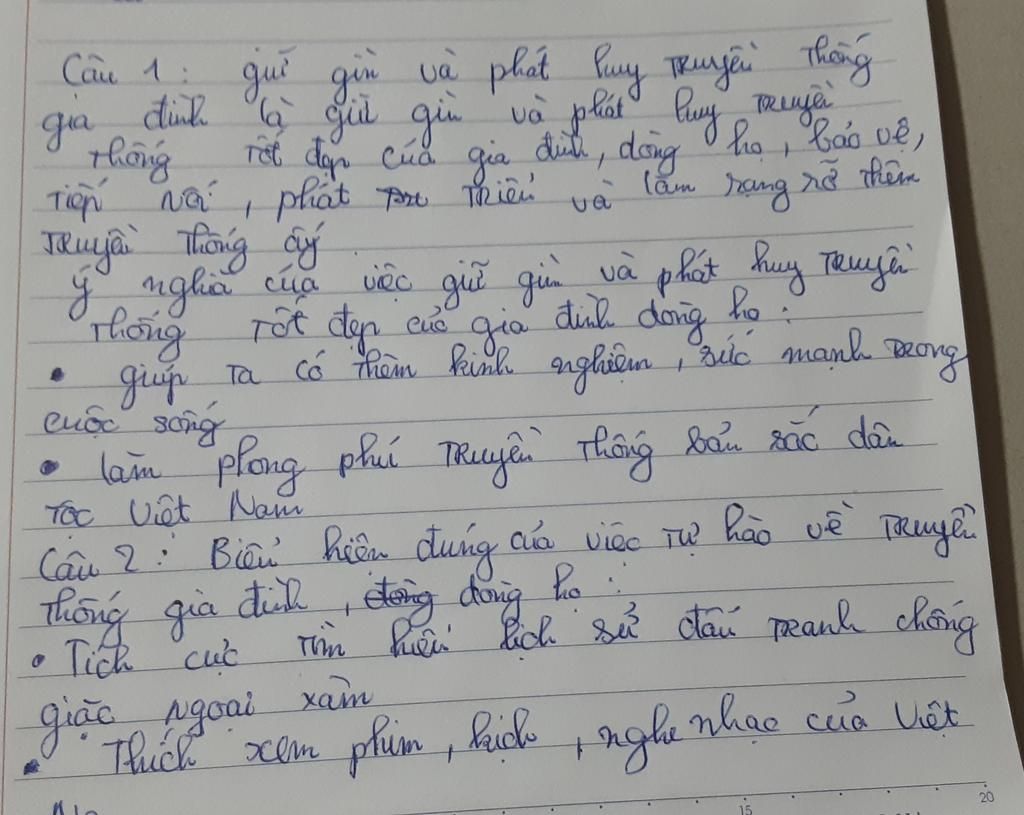 Câu 1: giữ gìn và phát huy truyền thống
gia đình là giữ gìn và phát huy truyền
thống tốt đẹp của gia đình, dòng họ, bảo vệ,
tiếp nối, phát triển và làm rạng rỡ thêm
truyền thống ấy
ý nghĩa của việc giữ gìn và phát huy truyền
thống tốt đẹp của gia đình dòng họ:
• giúp ta có thêm kinh nghiệm, sức mạnh trong
cuộc sống
• làm phong phú truyền thống bản sắc dân
tộc Việt Nam
Câu 2: Biểu hiện đúng của việc tự hào về truyền
thống gia đình, dòng dòng họ:
• Tích cực tìm hiểu lịch sử đấu tranh chống
giặc ngoại xâm
• Thích xem phim, kịch, nghe nhạc của Việt
15
20